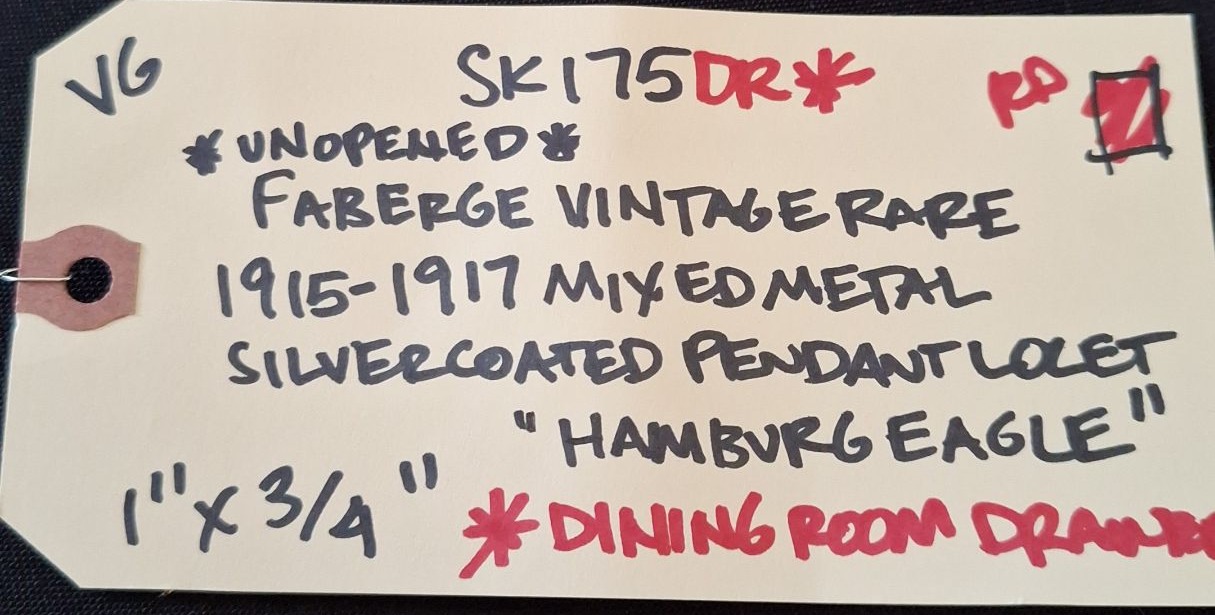 VG SK175DR* RP
*UNOPENED*
FABERGE VINTAGE RARE
1915-1917 MIXED METAL
SILVERCOATED PENDANT LOCET
"HAMBURG EAGLE"
1" X 3/4" *DINING ROOM DRAWER